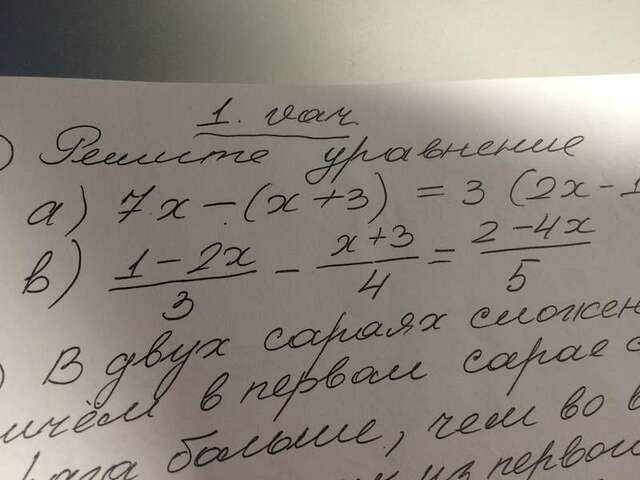 1. вар.
) Решите уравнение
а) 7x - (x+3) = 3 (2x - 1
в) \frac{1-2x}{3} - \frac{x+3}{4} = \frac{2-4x}{5}
) В двух сараях сложен
ичём в первом сарае с
раза больше, чем во в
из первого